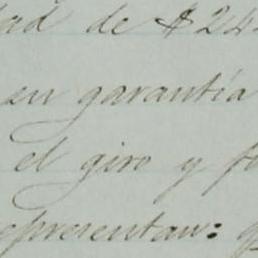 ad de $24
en garantía
el giro y
representan: